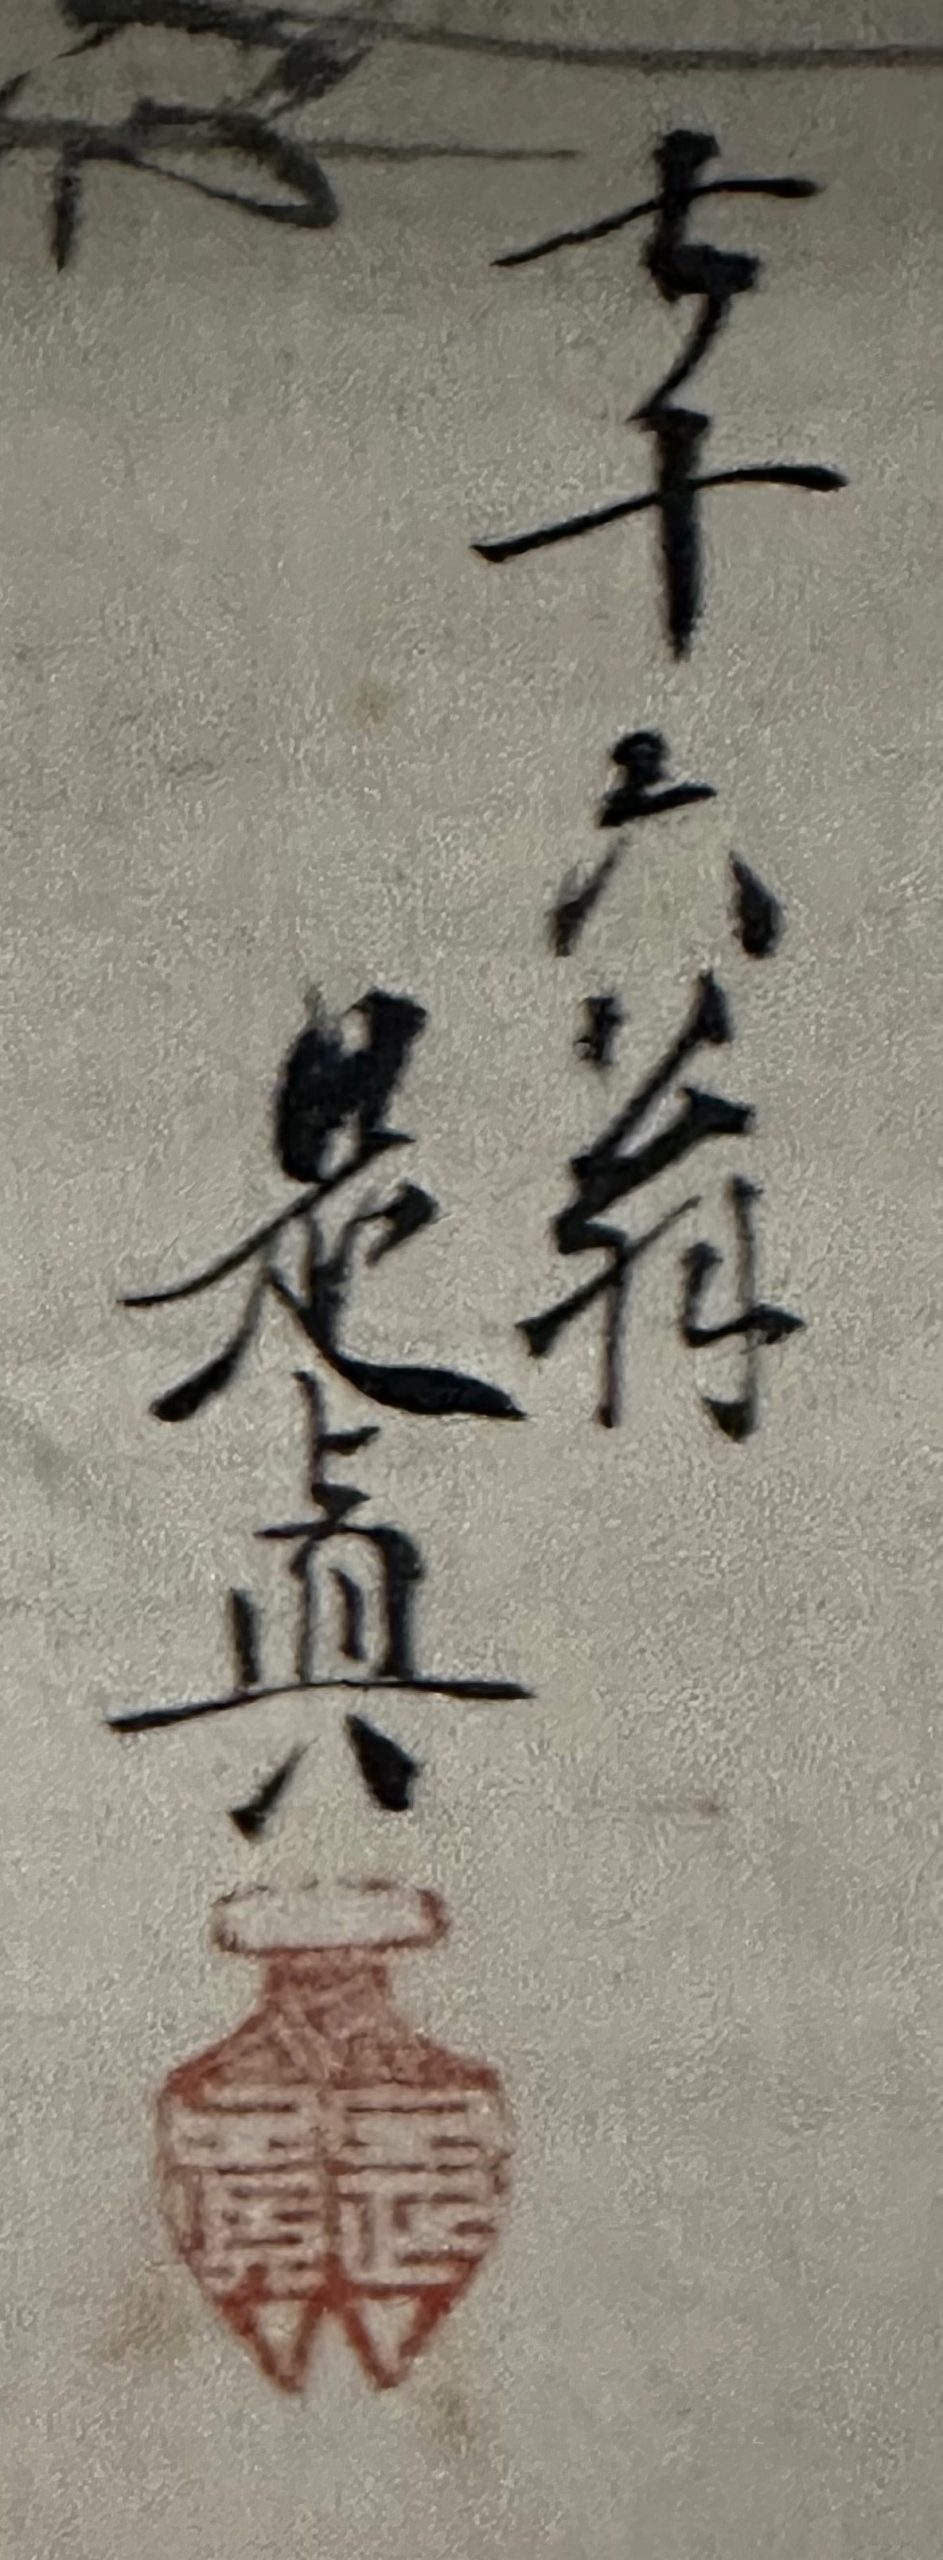 七十六翁
是眞